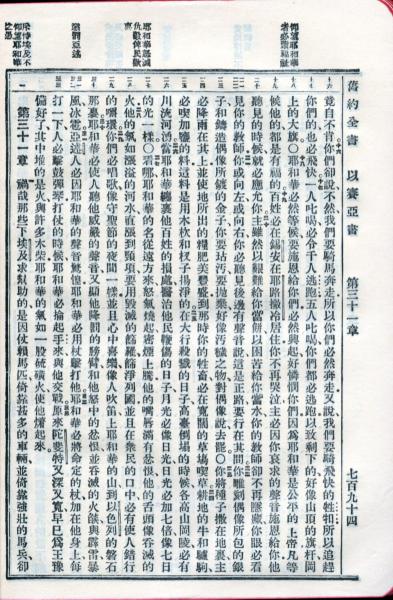 舊約全書　以賽亞書　第三十一章　七百九十四
仰望耶和華
者必蒙福祉
竟自不肯你們卻說不然我們要騎馬奔走所以你們必然奔走又說我們要騎飛快的牲口所以追趕
你們的也必飛快一人叱喝必令千人逃跑五人叱喝你們都必逃跑以致剩下的好像山頂的旗杆岡
上的大旗○耶和華必然等候要施恩給你們必然興起好憐憫你們因爲耶和華是公平的上帝凡等
候他的都是有福的百姓必在錫安在耶路撒冷居住你不再哭泣主必因你哀求的聲音施恩給你他
聽見的時候就必應允你主雖然以艱難給你當餅以困苦給你當水你的教師卻不再隱藏你眼必看
見你的教師你或向左或向右你必聽見後邊有聲音說這是正路要行在其間你雕刻偶像所包的銀
子和鑄造偶像所鍍的金子你要玷污要拋棄好像污穢之物對偶像說去罷○你將種子撒在地裏主
必降雨在其上並使地所出的糧肥美豐盛到那時你的牲畜必在寬闊的草場喫草耕地的牛和驢駒
必喫加鹽的料這料是用木杴和杈子揚淨的在大行殺戮的日子高臺倒塌的時候各高山岡陵必有
川流河湧當耶和華纏裹他百姓的損處醫治他民鞭傷的日子月光必像日光日光必加七倍像七日
耶和華懲滅
仇敵俾民歡
的光一樣○看哪耶和華的名從遠方來怒氣燒起密煙上騰他的嘴唇滿有忿恨他的舌頭像吞滅的
火他的氣如漲溢的河水直漲到頸項要用毀滅的篩籮篩淨列國並且在衆民的口中必有使人錯行
的嚼環你們必唱歌像守聖節的夜間一樣並且心中喜樂像人吹笛上耶和華的山到以色列的磐石
那裏耶和華必使人聽他威嚴的聲音又顯他降罰的膀臂和他怒中的忿恨並吞滅的火燄與霹雷暴
風冰雹亞述人必因耶和華的聲音驚惶耶和華必用杖擊打他耶和華必將命定的杖加在他身上每
打一下人必擊鼓彈琴打仗的時候耶和華必掄起手來與他交戰原來陀斐特又深又寬早已爲王豫
備好了其中堆的是火與許多木柴耶和華的氣如一股硫磺火使他燃起來
第三十一章　禍哉那些下埃及求幫助的是因仗賴馬匹倚靠甚多的車輛並倚靠強壯的馬兵卻